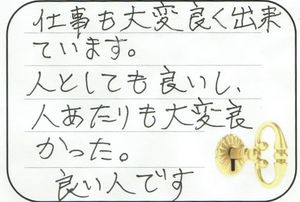 仕事も大変良く出来
ています。
人としても良いし、
人あたりも大変良
かった。
良い人です